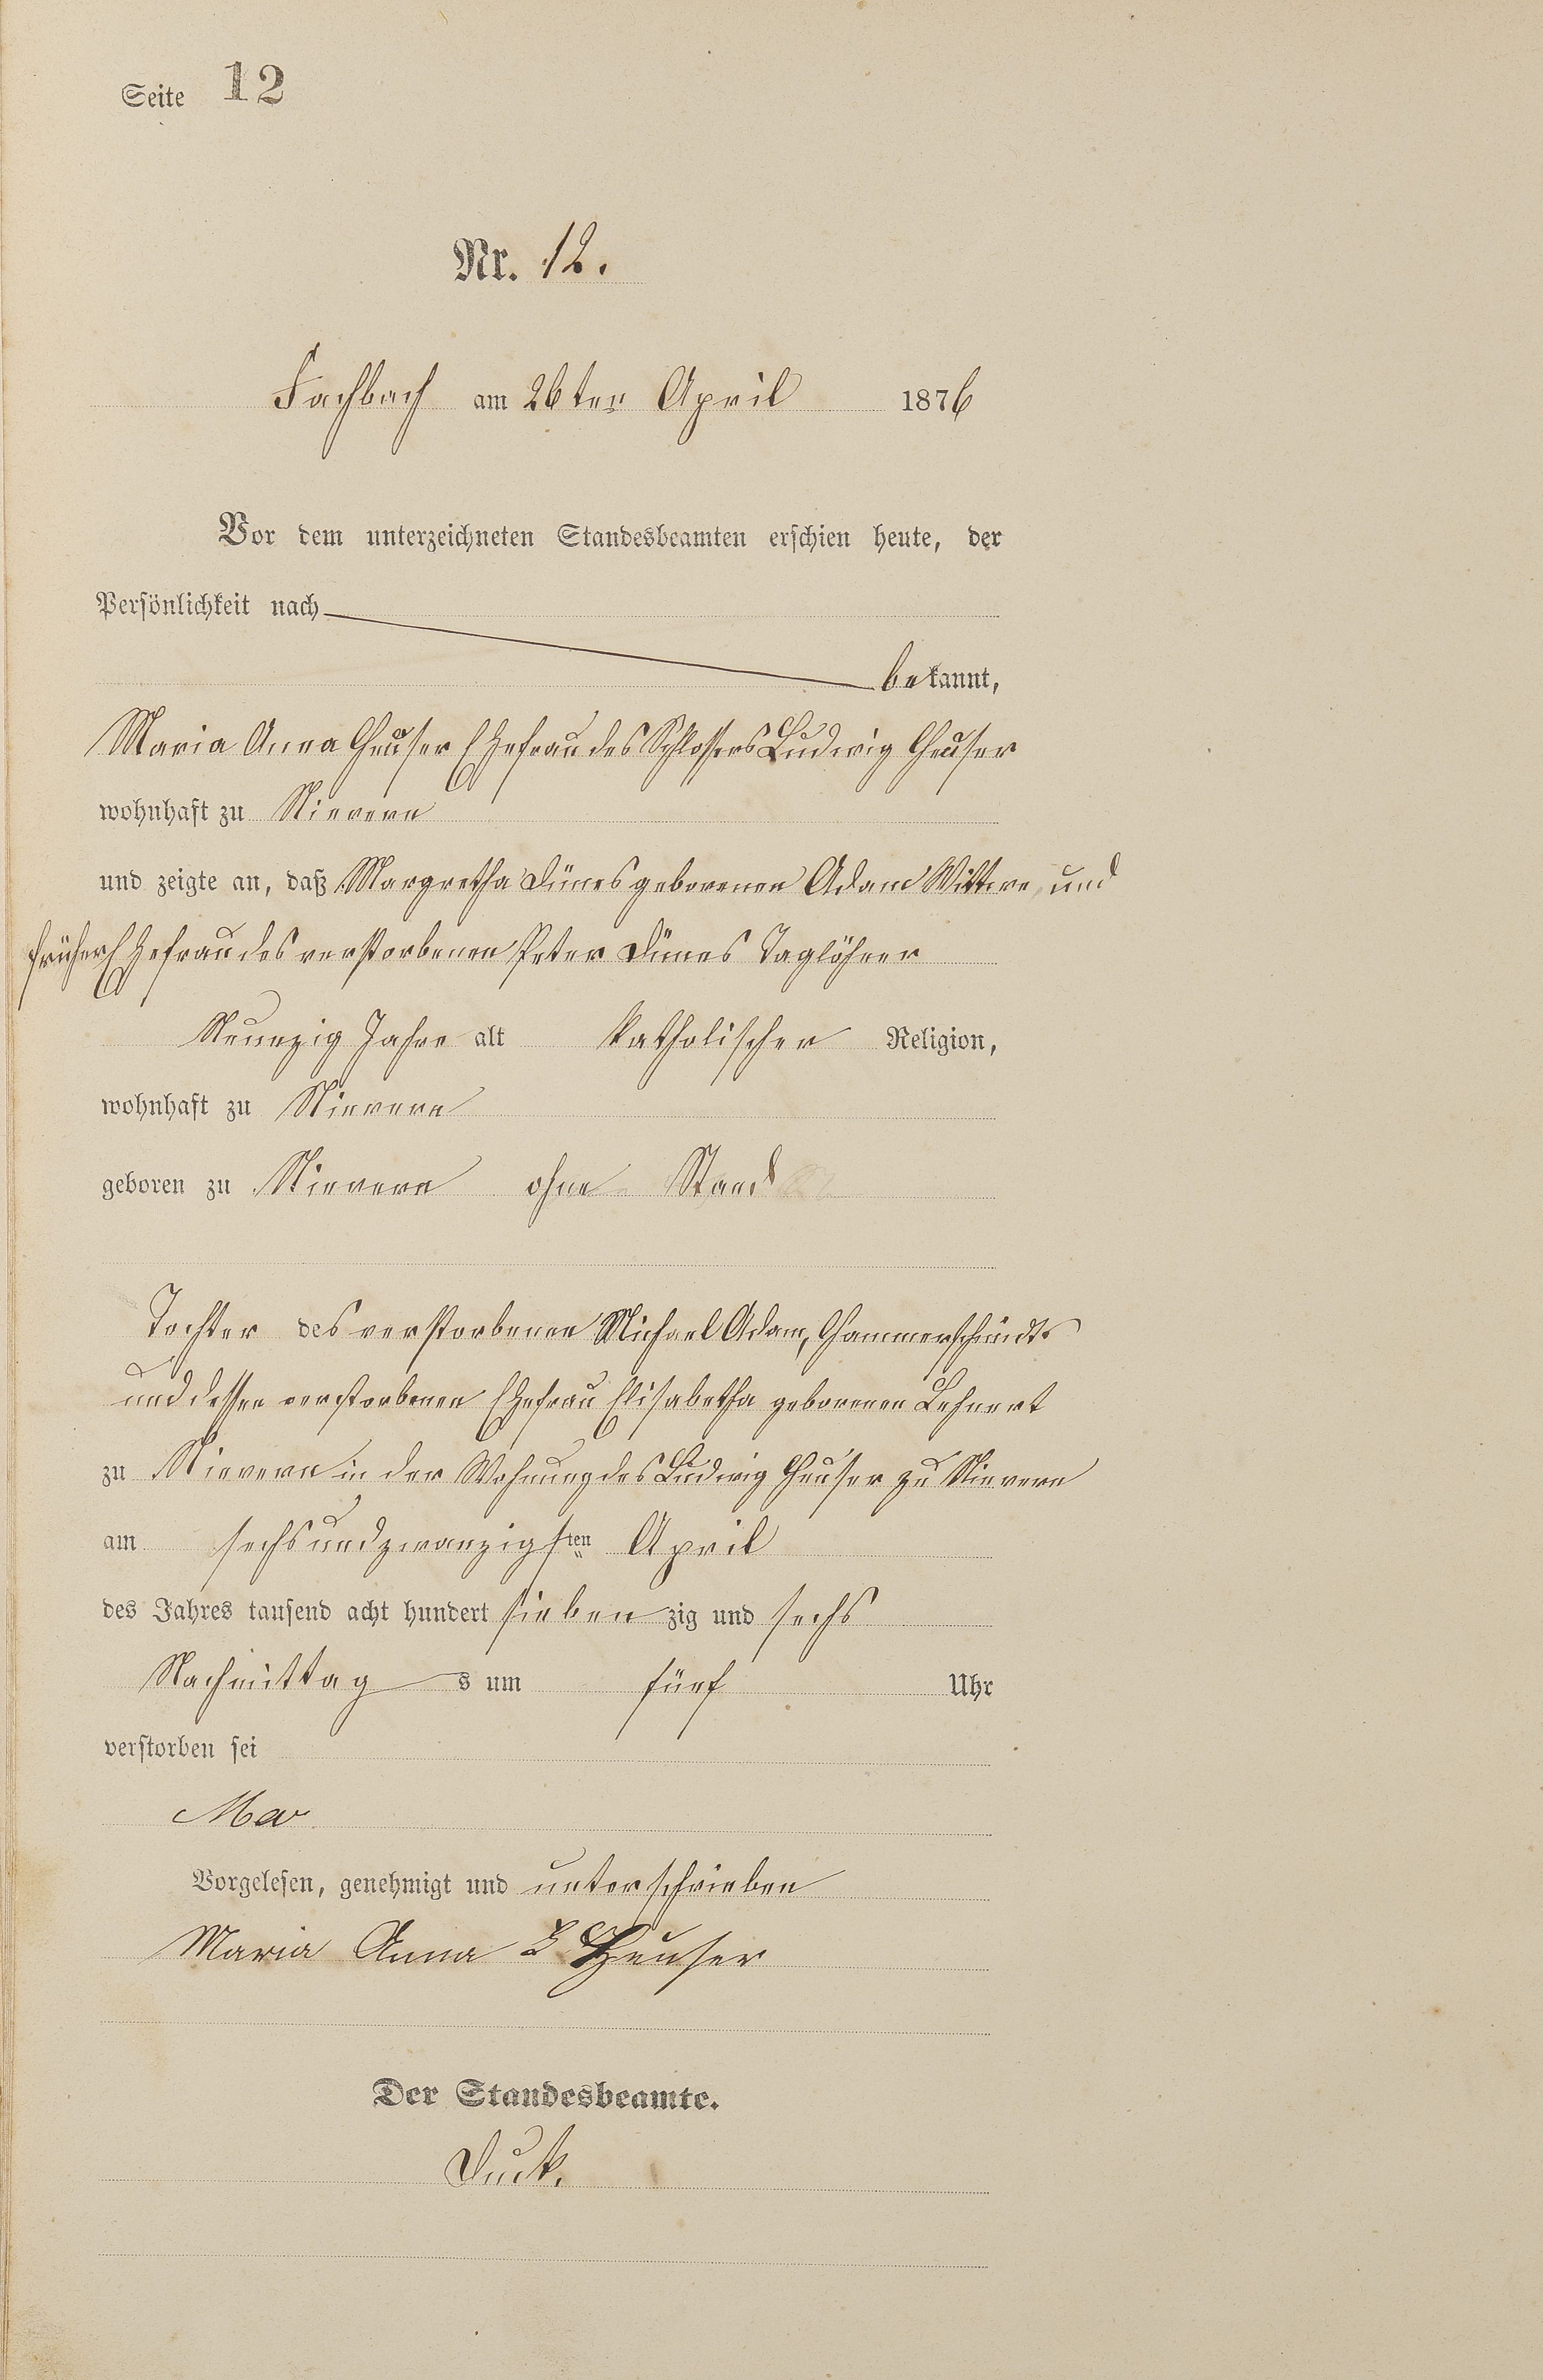 Seite 12
Nr. 12.
Fachbach am 26ten April 1876
Vor dem unterzeichneten Standesbeamten erschien heute, der
Persönlichkeit nach
bekannt,
Maria Anna Heuser Ehefrau des Schlossers Ludwig Heuser
wohnhaft zu Nievern
und zeigte an, daß Margretha Dünes geborenen Adam Wittwe, und
früher Ehefrau des verstorbenen Peter Dünes Taglöhner
Neunzig Jahre alt katholischer Religion,
wohnhaft zu Nievern
geboren zu Nievern ohne Stand
Tochter des verstorbenen Michael Adam, Hammerschmidts
und dessen verstorbenen Ehefrau Elisabetha geborenen Lehnert
zu Nievern in der Wohnung des Ludwig Heuser zu Nievern
am sechsundzwanzigsten April
des Jahres tausend acht hundert siebenzig und sechs
Nachmittags um fünf Uhr
verstorben sei
Mar
Vorgelesen, genehmigt und unterschrieben
Maria Anna Heuser
Der Standesbeamte.
Duck.